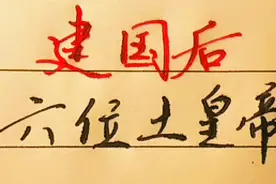 建国后
六位土皇帝